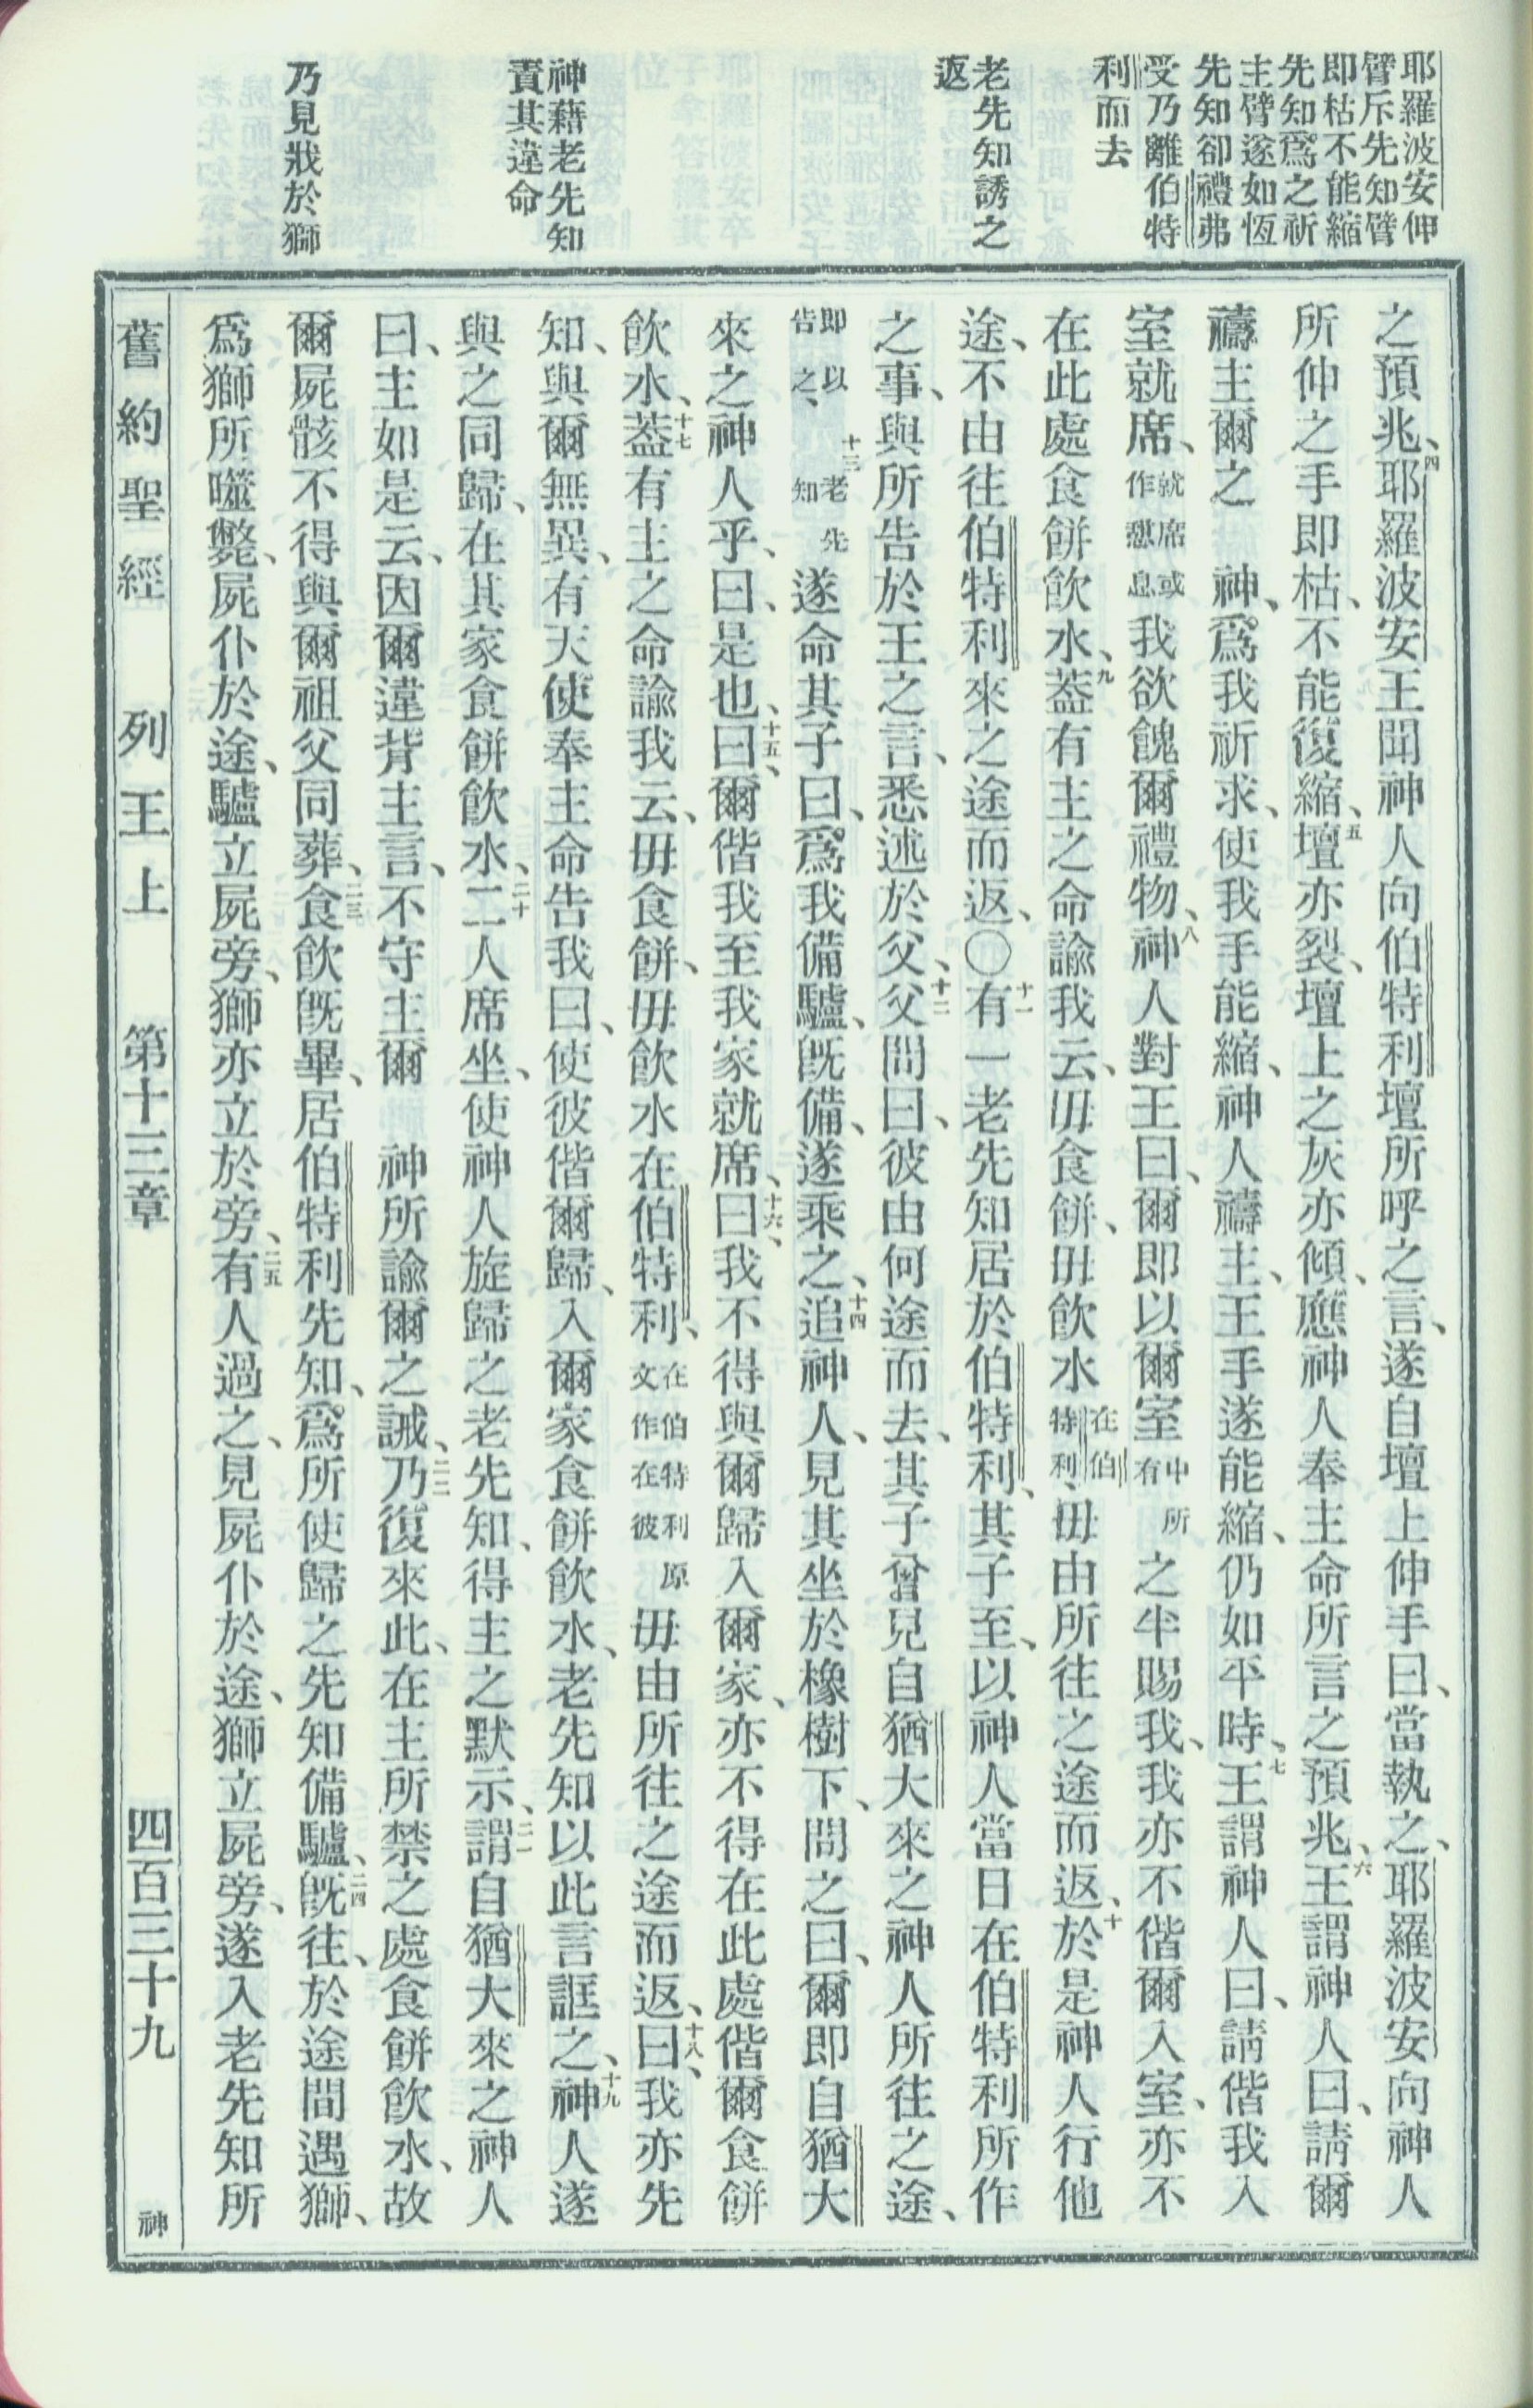 耶羅波安伸
臂斥先知臂
即枯不能縮
先知爲之祈
主臂遂如恆
先知卻禮弗
受乃離伯特
利而去
老先知誘之
返
神藉老先知
責其違命
乃見戕於獅
之預兆、四耶羅波安王聞神人向伯特利壇所呼之言、遂自壇上伸手曰、當執之、耶羅波安向神人
所伸之手即枯、不能復縮、五壇亦裂、壇上之灰亦傾、應神人奉主命所言之預兆、六王謂神人曰、請爾
禱主爾之　神、爲我祈求、使我手能縮、神人禱主、王手遂能縮、仍如平時、七王謂神人曰、請偕我入
室就席、就席或作憇息我欲餽爾禮物、八神人對王曰、爾即以爾室中所有之半賜我、我亦不偕爾入室、亦不
在此處食餅飲水、九蓋有主之命諭我云、毋食餅、毋飲水在伯特利、毋由所往之途而返、十於是神人行他
途、不由往伯特利來之途而返、〇十一有一老先知居於伯特利、其子至、以神人當日在伯特利所作
之事、與所告於王之言、悉述於父、十二父問曰、彼由何途而去、其子曾見自猶大來之神人所往之途、
即以告之、十三老先知遂命其子曰、爲我備驢、旣備、遂乘之、十四追神人、見其坐於橡樹下、問之曰、爾即自猶大
來之神人乎、曰、是也、十五曰、爾偕我至我家就席、十六曰、我不得與爾歸入爾家、亦不得在此處偕爾食餅
飲水、十七蓋有主之命諭我云、毋食餅、毋飲水在伯特利、在伯特利原文作在彼毋由所往之途而返、十八曰、我亦先
知、與爾無異、有天使奉主命告我曰、使彼偕爾歸、入爾家食餅飲水、老先知以此言誆之、十九神人遂
與之同歸、在其家食餅飲水、二十二人席坐、使神人旋歸之老先知、得主之默示、二一謂自猶大來之神人
曰、主如是云、因爾違背主言、不守主爾　神所諭爾之誡、二二乃復來此、在主所禁之處食餅飲水、故
爾屍骸不得與爾祖父同葬、二三食飲旣畢、居伯特利先知、爲所使歸之先知備驢、二四旣往、於途間遇獅、
爲獅所噬斃、屍仆於途、驢立屍旁、獅亦立於旁、二五有人過之、見屍仆於途、獅立屍旁、遂入老先知所
舊約聖經　列王上　第十三章　四百三十九　神